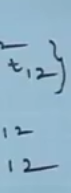 t₁₂}
12
12